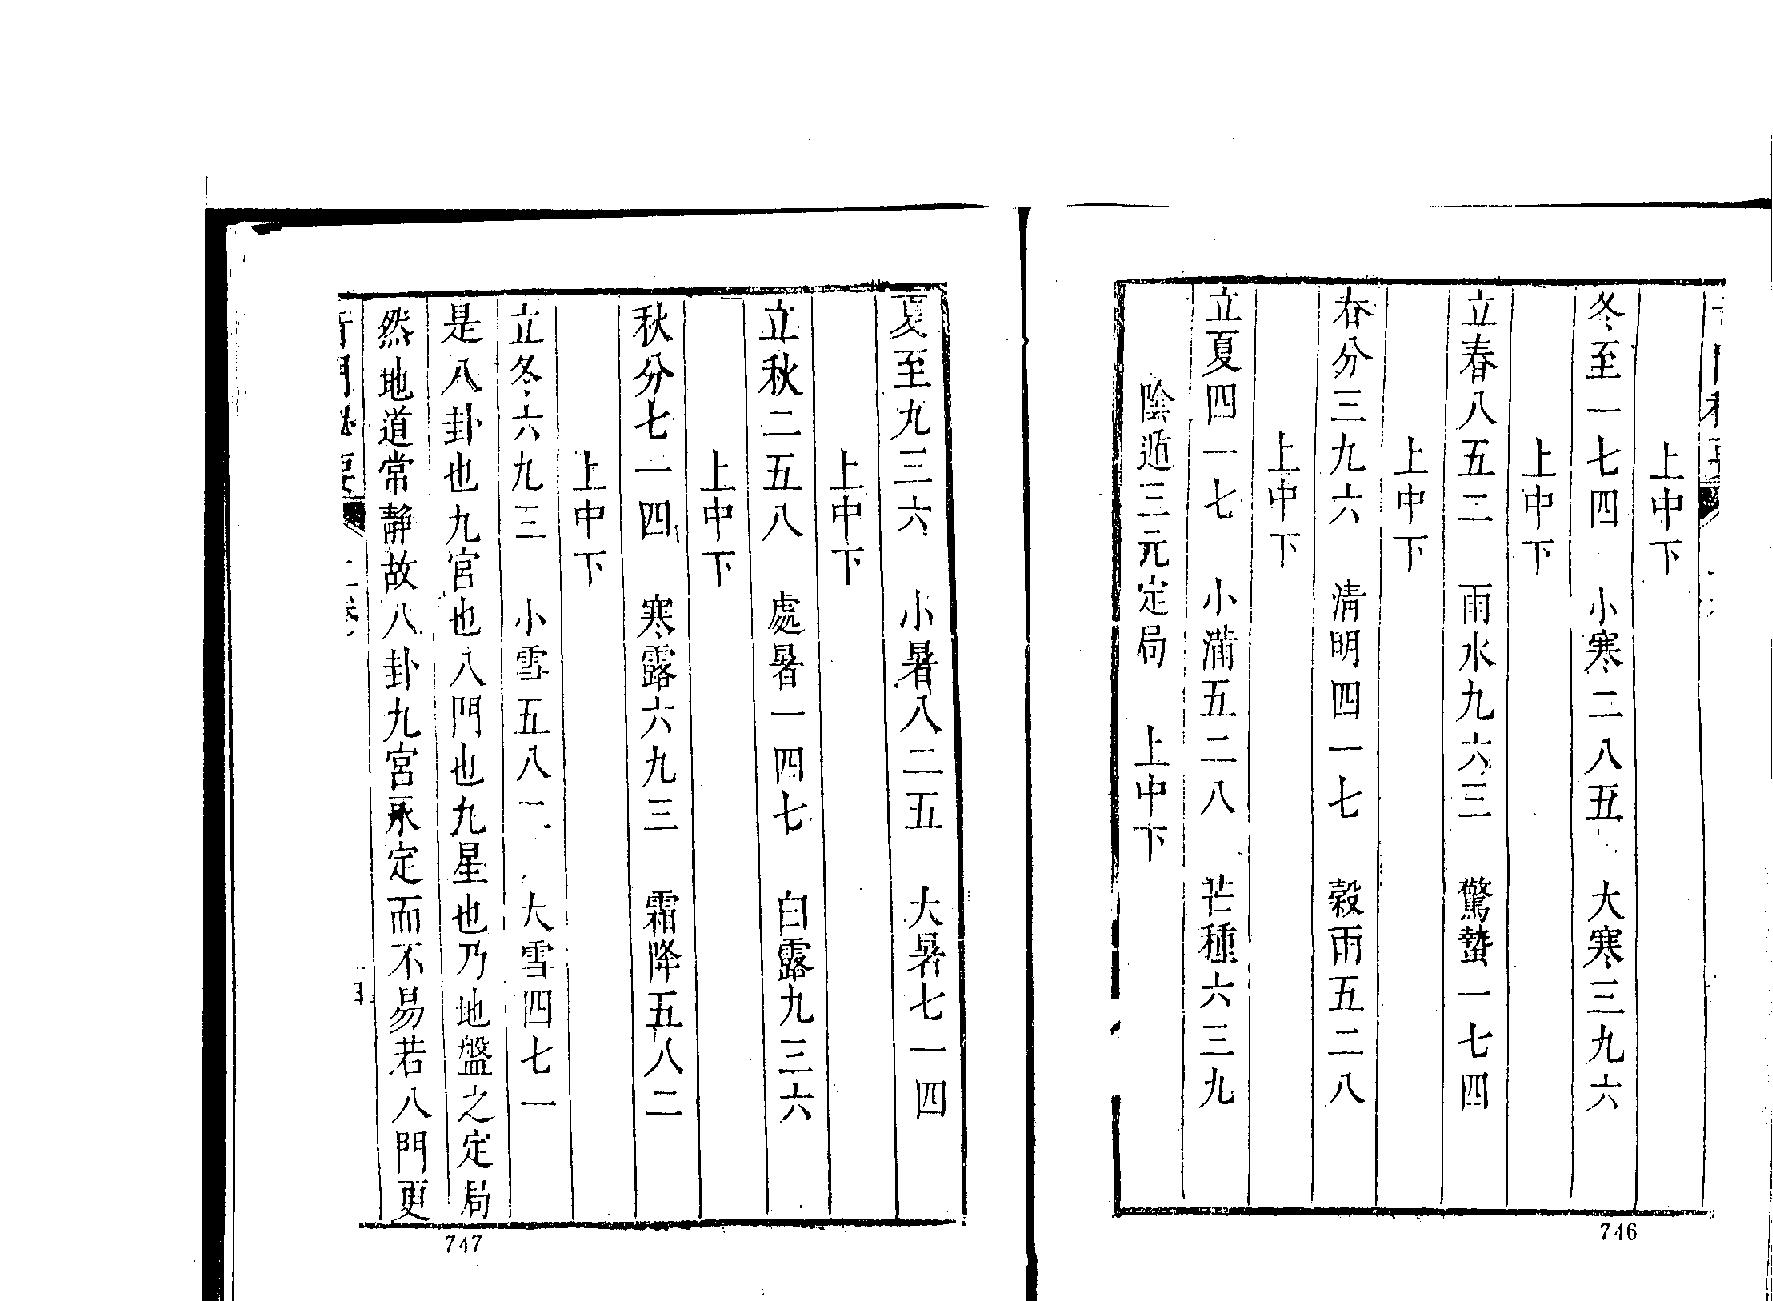 上中下
冬至一七四　小寒二八五　大寒三九六
上中下
立春八五二　雨水九六三　驚蟄一七四
上中下
春分三九六　清明四一七　穀雨五二八
上中下
立夏四一七　小滿五二八　芒種六三九
陰遁三元定局　上中下
746
夏至九三六　小暑八二五　大暑七一四
上中下
立秋二五八　處暑一四七　白露九三六
上中下
秋分七一四　寒露六九三　霜降五八二
上中下
立冬六九三　小雪五八二　大雪四七一
是八卦也九宮也八門也九星也乃地盤之定局
然地道常靜故八卦九宮永定而不易若八門更
747